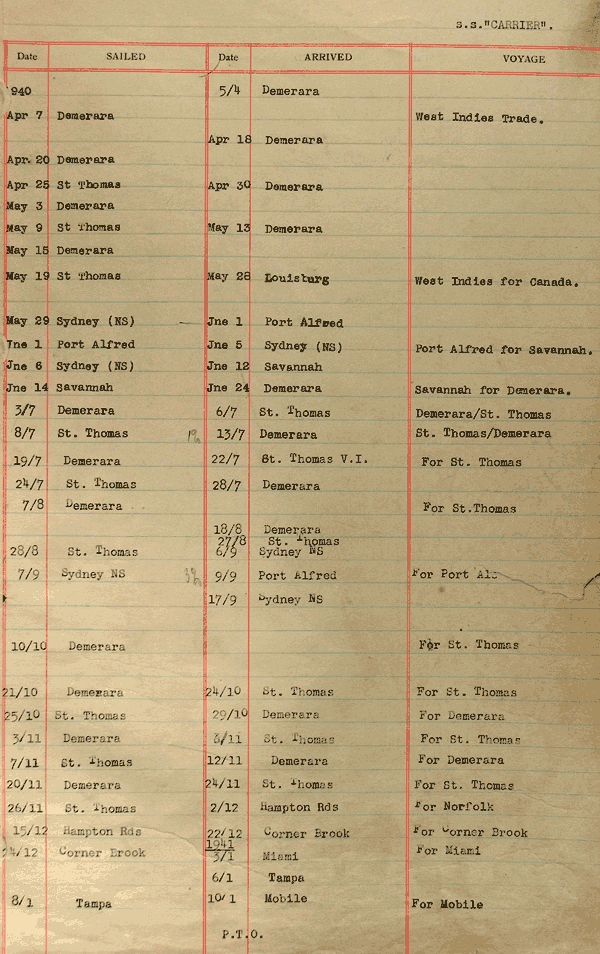 S.S."CARRIER".
Date SAILED Date ARRIVED VOYAGE
940 5/4 Demerara
Apr 7 Demerara West Indies Trade.
Apr 18 Demerara
Apr. 20 Demerara
Apr 25 St Thomas Apr 30 Demerara
May 3 Demerara
May 9 St Thomas May 13 Demerara
May 15 Demerara
May 19 St Thomas May 28 Louisburg West Indies for Canada.
May 29 Sydney (NS) Jne 1 Port Alfred
Jne 1 Port Alfred Jne 5 Sydney (NS) Port Alfred for Savannah.
Jne 6 Sydney (NS) Jne 12 Savannah
Jne 14 Savannah Jne 24 Demerara Savannah for Demerara.
3/7 Demerara 6/7 St. Thomas Demerara/St. Thomas
8/7 St. Thomas 13/7 Demerara St. Thomas/Demerara
19/7 Demerara 22/7 St. Thomas V.I. For St. Thomas
24/7 St. Thomas 28/7 Demerara
7/8 Demerara For St.Thomas
18/8 Demerara
27/8 St. Thomas
28/8 St. Thomas 6/9 Sydney NS
7/9 Sydney NS 9/9 Port Alfred For Port
17/9 Sydney NS
10/10 Demerara For St. Thomas
21/10 Demerara 24/10 St. Thomas For St. Thomas
25/10 St. Thomas 29/10 Demerara For Demerara
3/11 Demerara 6/11 St. Thomas For St. Thomas
7/11 St. Thomas 12/11 Demerara For Demerara
20/11 Demerara 24/11 St. Thomas For St. Thomas
26/11 St. Thomas 2/12 Hampton Rds For Norfolk
15/12 Hampton Rds 22/12 Corner Brook For Corner Brook
1941
24/12 Corner Brook 3/1 Miami For Miami
6/1 Tampa
8/1 Tampa 10/1 Mobile For Mobile
P.T.O.